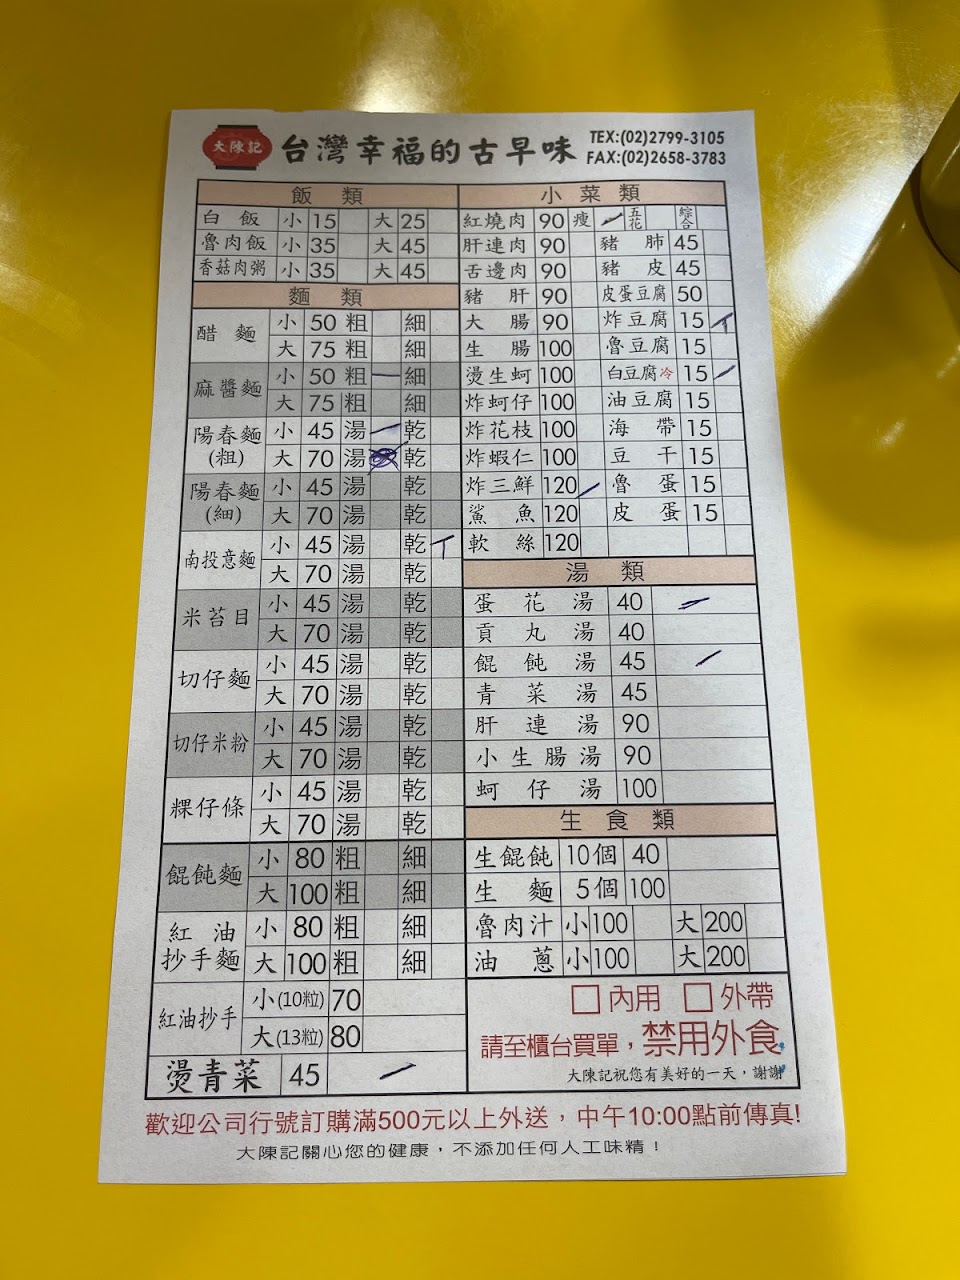 大陳記 台灣幸福的古早味 TEX:(02)2799-3105
FAX:(02)2658-3783
飯類
白飯 小 15 大 25
魯肉飯 小 35 大 45
香菇肉粥 小 35 大 45
麵類
醋麵 小 50 粗 細
大 75 粗 細
麻醬麵 小 50 粗 細
大 75 粗 細
陽春麵(粗) 小 45 湯 乾
大 70 湯 乾
陽春麵(細) 小 45 湯 乾
大 70 湯 乾
南投意麵 小 45 湯 乾
大 70 湯 乾
米苔目 小 45 湯 乾
大 70 湯 乾
切仔麵 小 45 湯 乾
大 70 湯 乾
切仔米粉 小 45 湯 乾
大 70 湯 乾
粿仔條 小 45 湯 乾
大 70 湯 乾
餛飩麵 小 80 粗 細
大 100 粗 細
紅油抄手麵 小 80 粗 細
大 100 粗 細
紅油抄手 小(10粒) 70
大(13粒) 80
燙青菜 45
小菜類
紅燒肉 90 瘦 五花 綜合
肝連肉 90 豬肺 45
舌邊肉 90 豬皮 45
豬肝 90 皮蛋豆腐 50
大腸 90 炸豆腐 15
生腸 100 魯豆腐 15
燙生蚵 100 白豆腐冷 15
炸蚵仔 100 油豆腐 15
炸花枝 100 海帶 15
炸蝦仁 100 豆干 15
炸三鮮 120 魯蛋 15
鯊魚 120 皮蛋 15
軟絲 120
湯類
蛋花湯 40
貢丸湯 40
餛飩湯 45
青菜湯 45
肝連湯 90
小生腸湯 90
蚵仔湯 100
生食類
生餛飩 10個 40
生麵 5個 100
魯肉汁 小 100 大 200
油蔥 小 100 大 200
□內用 □外帶
請至櫃台買單，禁用外食
大陳記祝您有美好的一天，謝謝
歡迎公司行號訂購滿500元以上外送，中午10:00點前傳真!
大陳記關心您的健康，不添加任何人工味精！